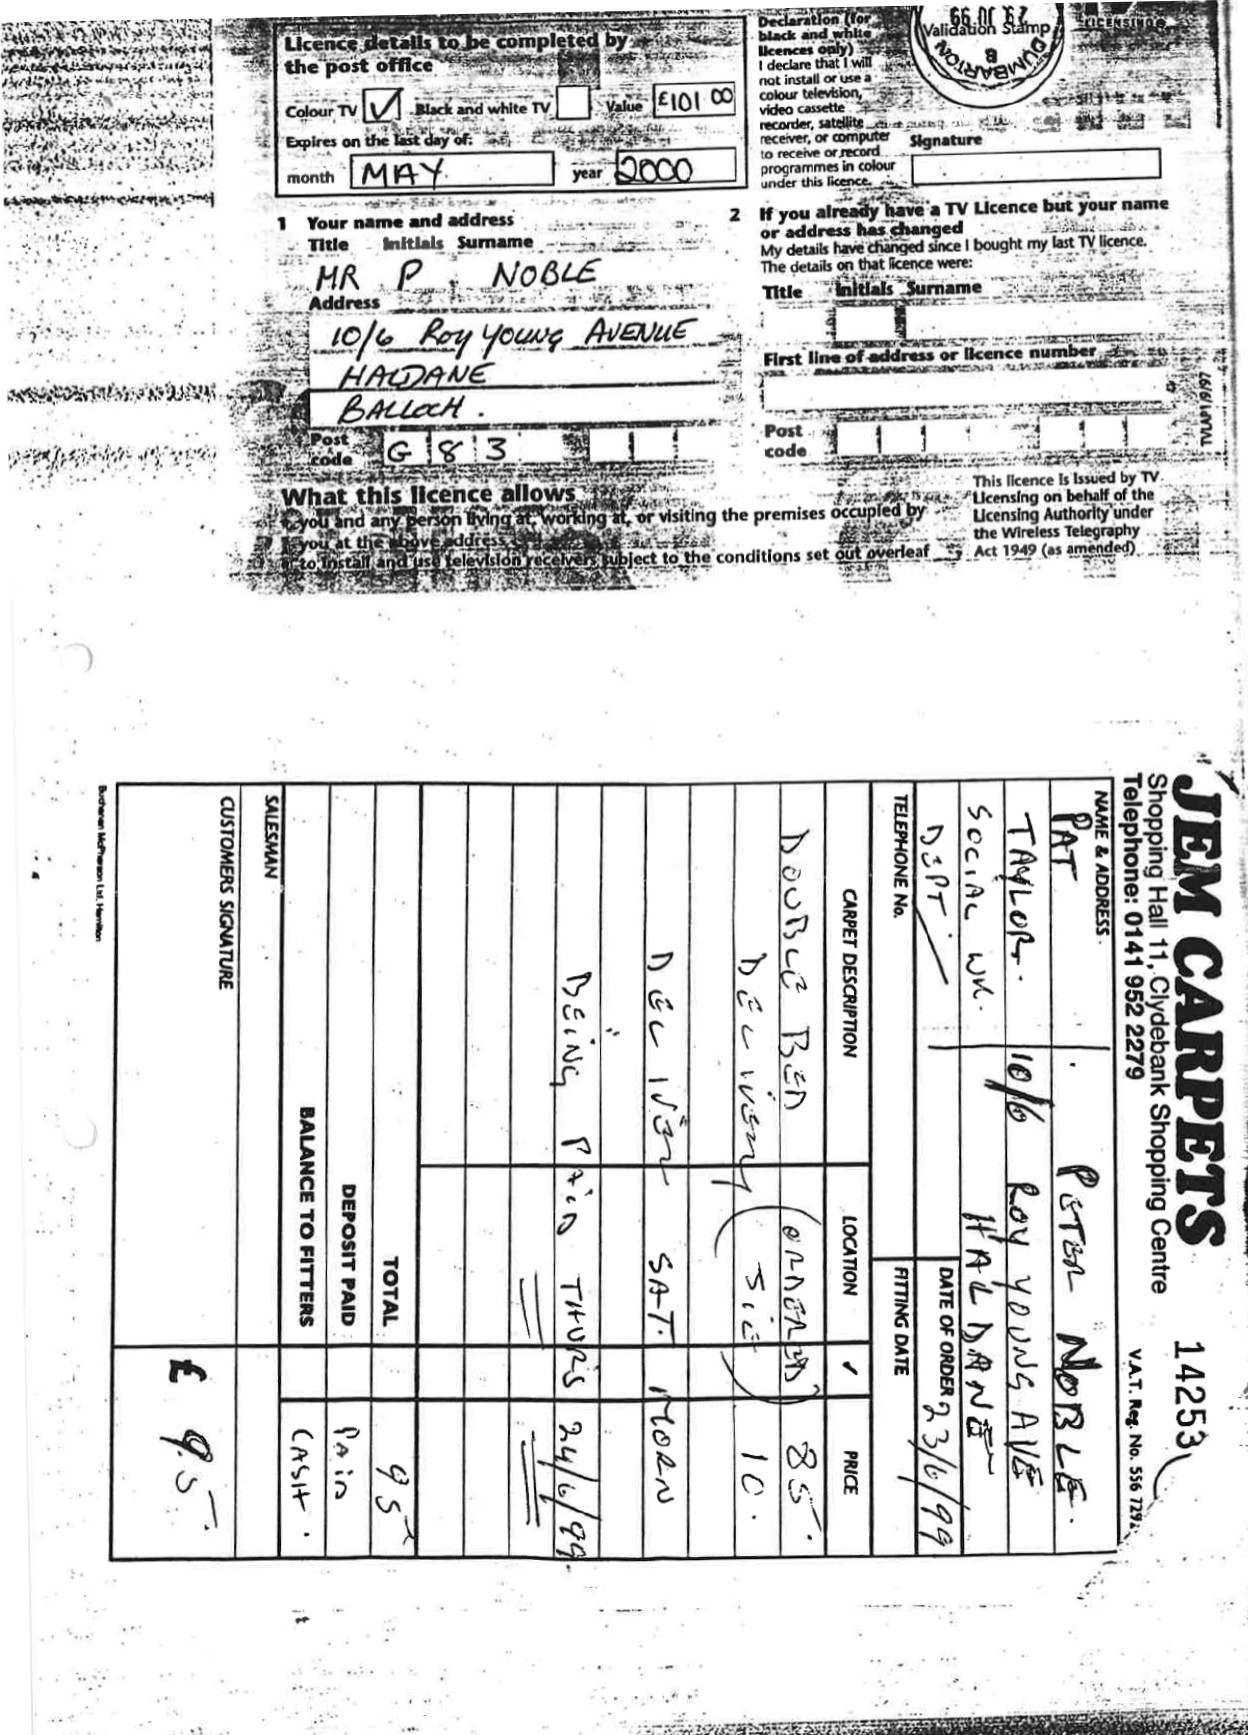 Licence details to be completed by
the post office
Colour TV ✓ Black and white TV Value £101 00
Expires on the last day of:
month MAY year 2000
Declaration (for
black and white
licences only)
I declare that I will
not install or use a
colour television,
video cassette
recorder, satellite
receiver, or computer
to receive or record
programmes in colour
under this licence.
Validation Stamp
DUMBARTON
8
LICENSING
Signature
1 Your name and address
Title Initials Surname
MR P. NOBLE
Address
10/6 ROY YOUNG AVENUE
HALDANE
BALLOCH.
Post
code G 8 3
2 If you already have a TV Licence but your name
or address has changed
My details have changed since I bought my last TV licence.
The details on that licence were:
Title Initials Surname
First line of address or licence number
Post
code
What this licence allows
you and any person living at, working at, or visiting the premises occupied by
you at the above address
to install and use television receivers subject to the conditions set out overleaf
This licence is issued by TV
Licensing on behalf of the
Licensing Authority under
the Wireless Telegraphy
Act 1949 (as amended)
JEM CARPETS 14253
Shopping Hall 11, Clydebank Shopping Centre
Telephone: 0141 952 2279 V.A.T. Reg. No. 556 729
NAME & ADDRESS
PAT PETER NOBLE.
TAYLOR. 10/6 ROY YOUNG AVE
SOCIAL WK. HALDANE
DEPT DATE OF ORDER 23/6/99
TELEPHONE No. FITTING DATE
CARPET DESCRIPTION LOCATION ✓ PRICE
DOUBLE BED (ORDERED) 85.
DELIVERY 10.
DELIVER SAT. MORN
BEING PAID THURS 24/6/99.
TOTAL 95
DEPOSIT PAID PAID
BALANCE TO FITTERS CASH.
SALESMAN
CUSTOMERS SIGNATURE £ 95
Buchanan McPherson Ltd. Hamilton